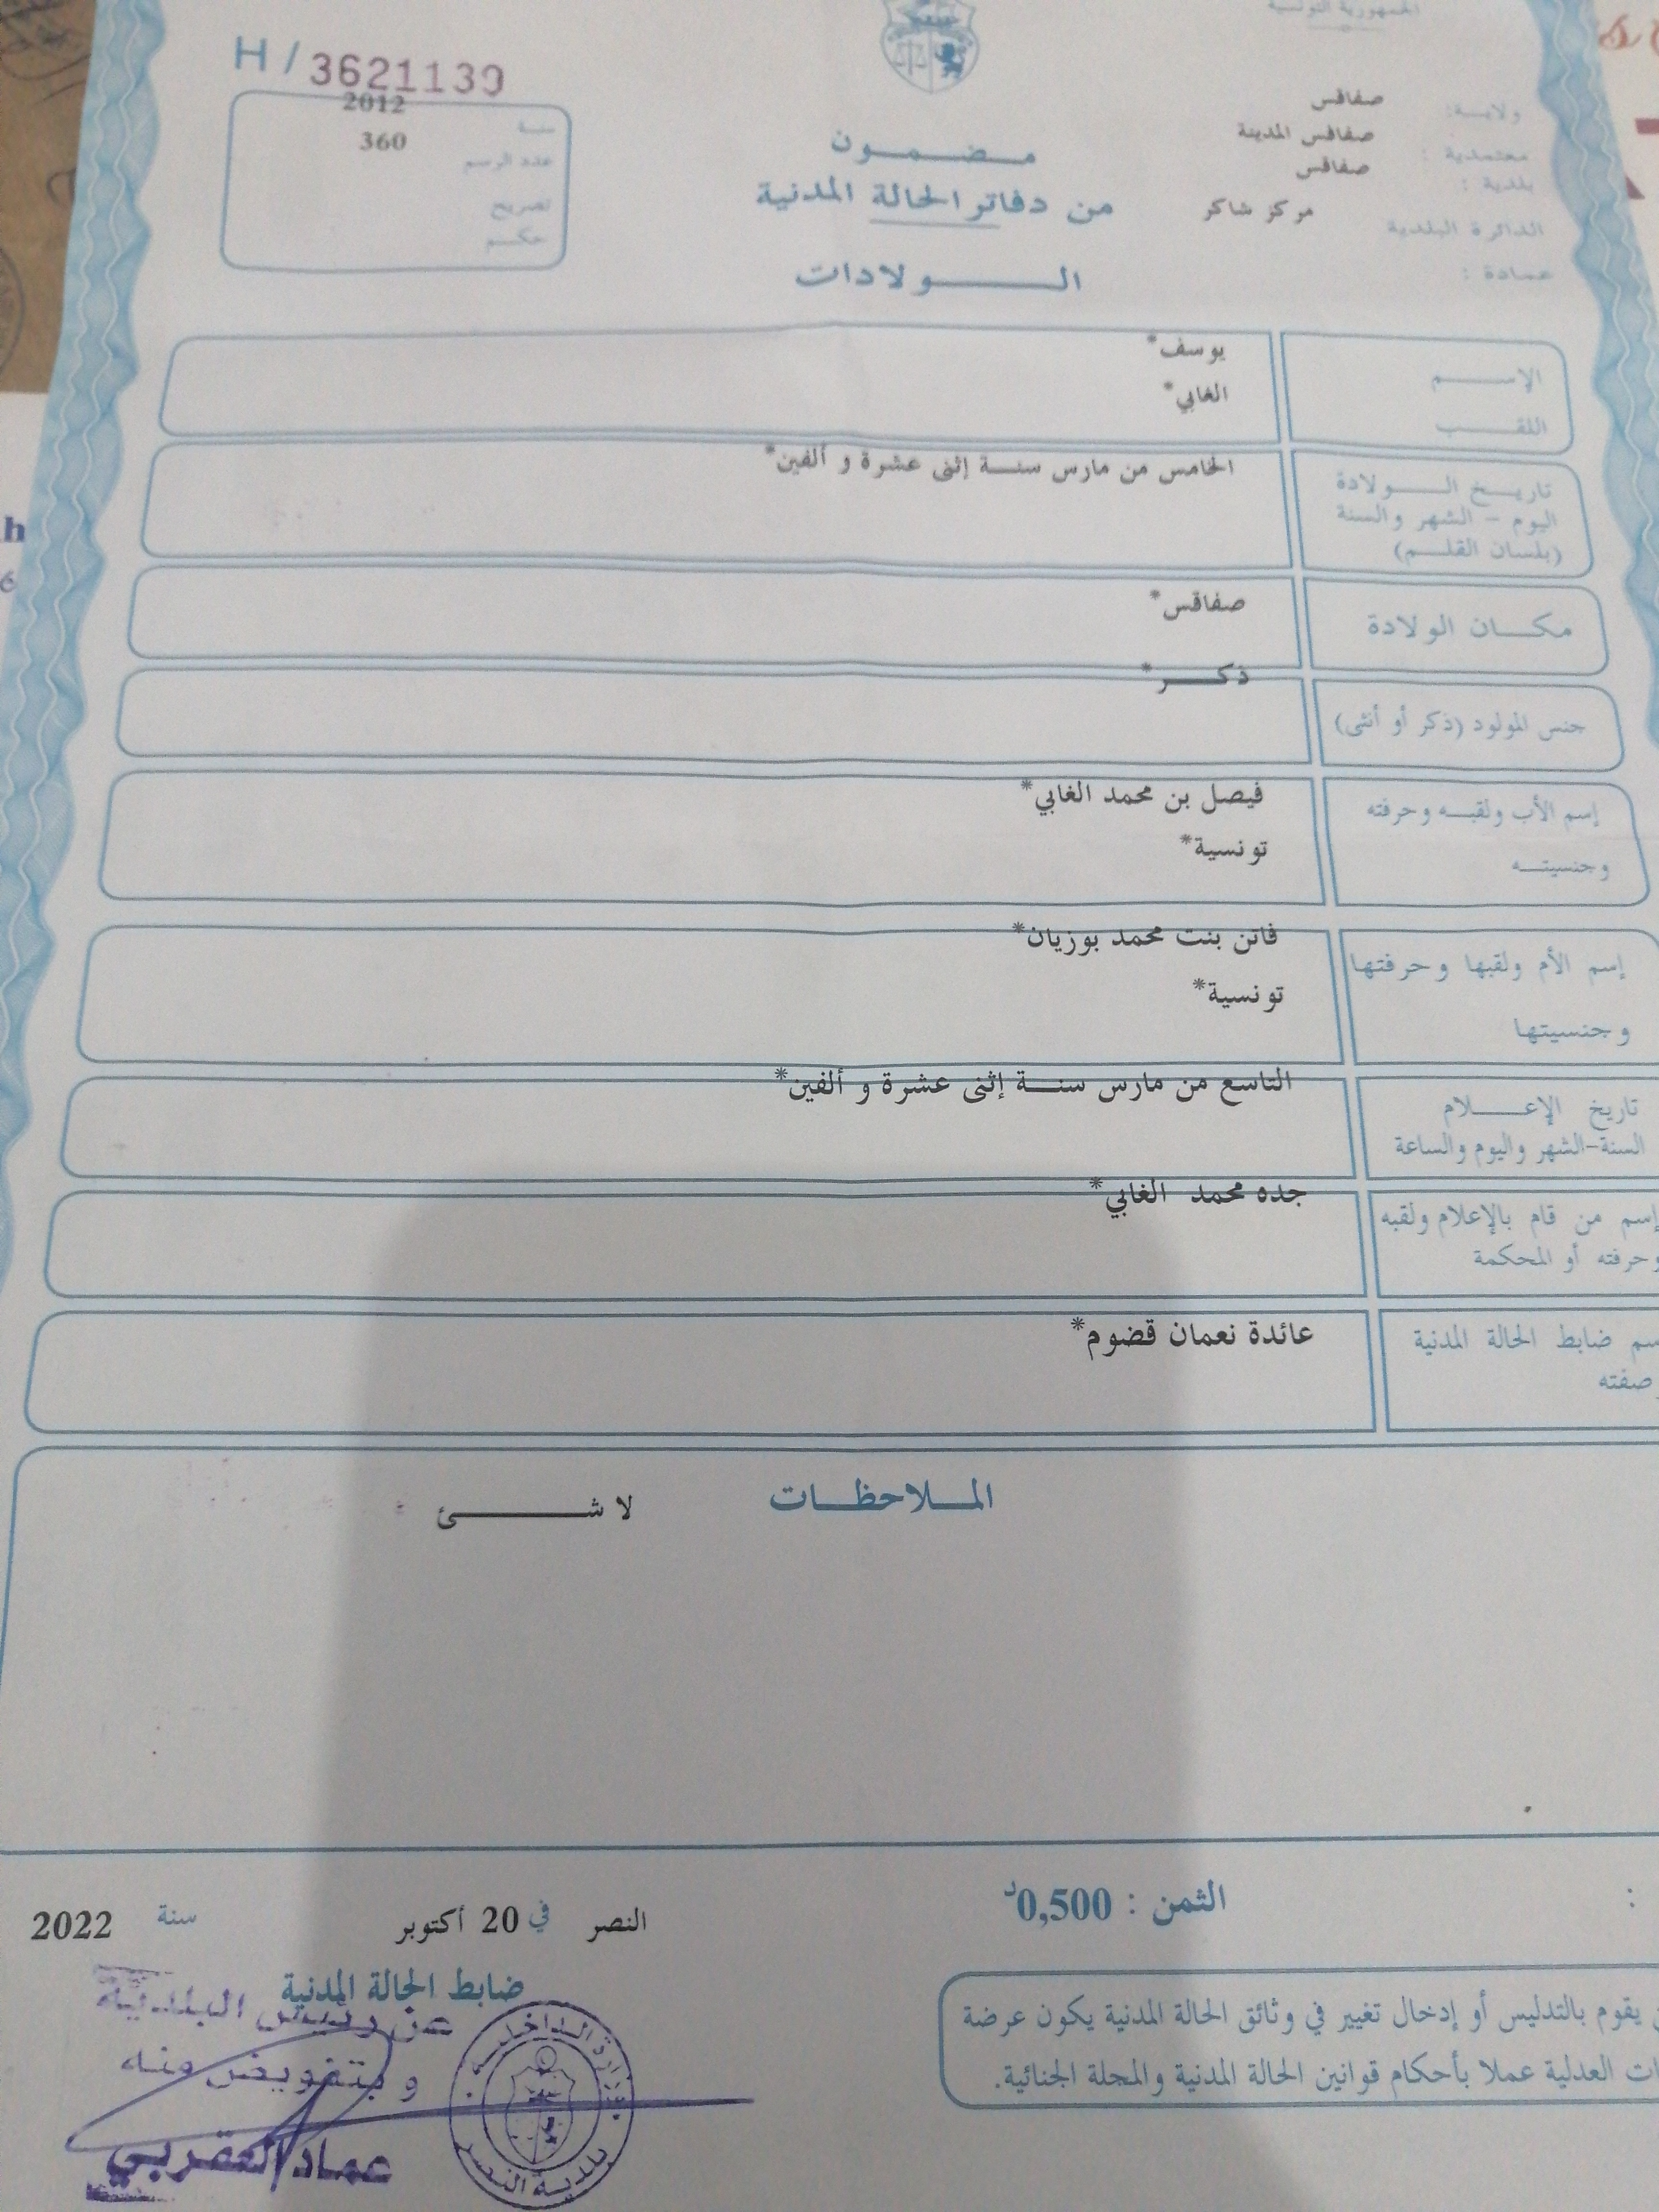 الجمهورية التونسية
H / 3621139
ولايـة: صفاقس
معتمدية : صفاقس المدينة
بلدية : صفاقس
الدائرة البلدية مركز شاكر
عمادة :
سنة 2012
عدد الرسم 360
تصريح
حكم
مضمون
من دفاتر الحالة المدنية
الـولادات
الإسم يوسف*
اللقب الغابي*
تاريخ الـولادة الخامس من مارس سنة إثنى عشرة و ألفين*
اليوم - الشهر والسنة
(بلسان القلم)
مكان الولادة صفاقس*
جنس المولود (ذكر أو أنثى) ذكر*
إسم الأب ولقبه وحرفته فيصل بن محمد الغابي*
وجنسيته تونسية*
إسم الأم ولقبها وحرفتها فاتن بنت محمد بوزيان*
وجنسيتها تونسية*
تاريخ الإعلام التاسع من مارس سنة إثنى عشرة و ألفين*
السنة-الشهر واليوم والساعة
إسم من قام بالإعلام ولقبه جده محمد الغابي*
وحرفته أو المحكمة
ضابط الحالة المدنية عائدة نعمان قضوم*
صفته
الملاحظات لا شئ
الثمن : 0,500د
النصر في 20 أكتوبر سنة 2022
ضابط الحالة المدنية
عن رئيس البلدية
و بتفويض منه
عماد العقربي
وزارة الداخلية
بلدية النصر
يقوم بالتدليس أو إدخال تغيير في وثائق الحالة المدنية يكون عرضة
العدلية عملا بأحكام قوانين الحالة المدنية والمجلة الجنائية.